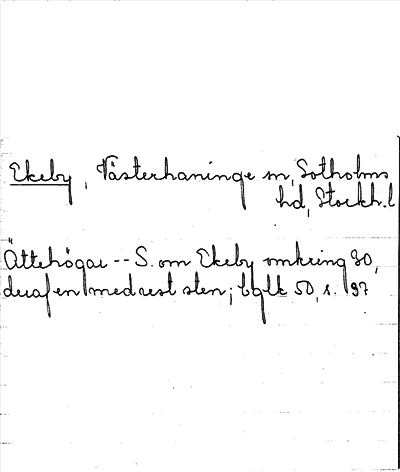 Ekeby, Västerhaninge sn, Sotholms
hd, Stockh. l
Ättehögar -- S. om Ekeby omkring 30,
deraf en med rest sten; bglk 50, s. 197